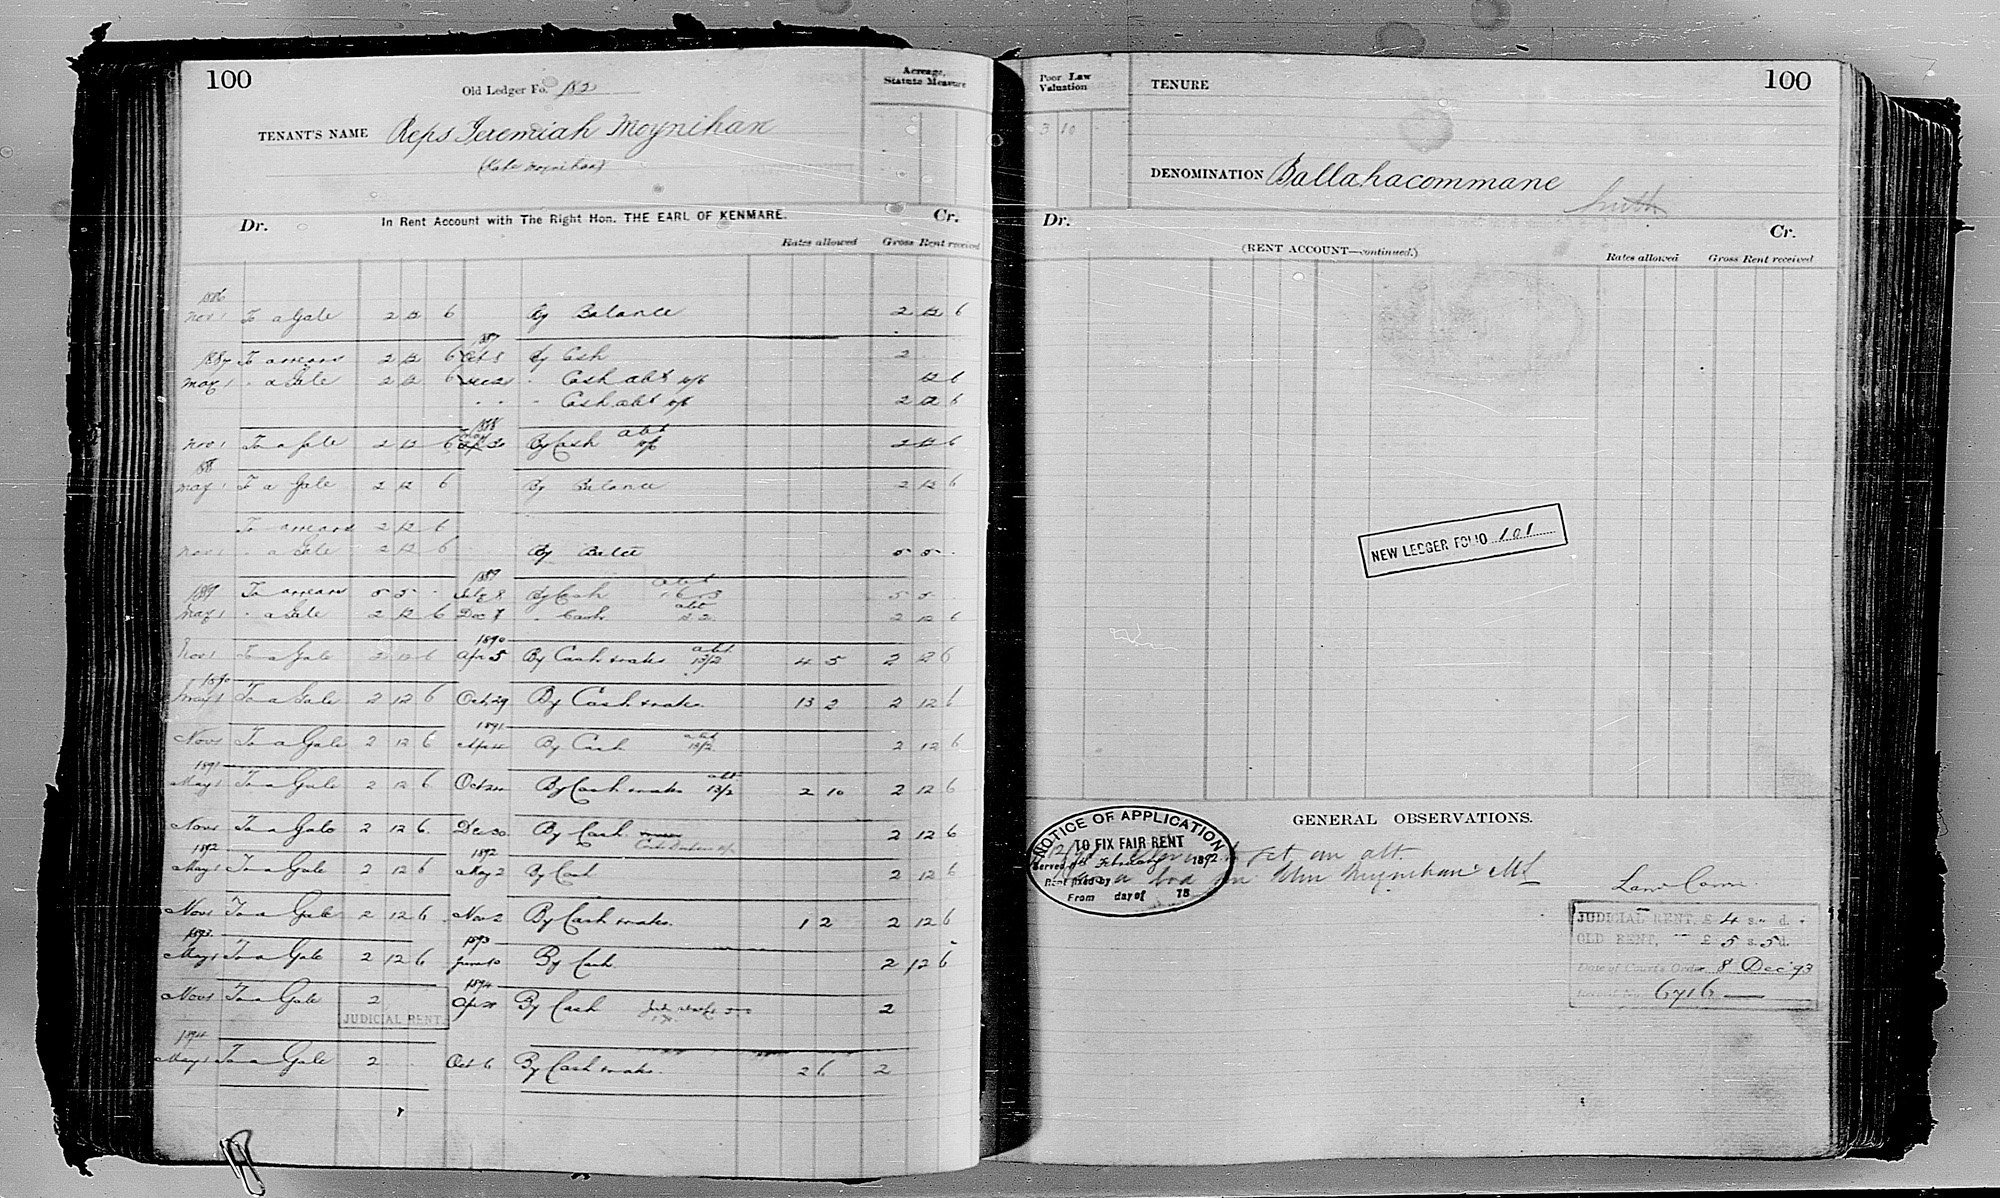 100
Old Ledger Fo. 182
Acreage, Statute Measure
TENANT'S NAME Reps Jeremiah Moynihan
(Kate Moynihan)
In Rent Account with The Right Hon. THE EARL OF KENMARE.
Dr. Cr.
Rates allowed Gross Rent received
1886
Nov 1 To a Gale 2 12 6 By Balance 2 12 6
1887
1887 To arrears 2 12 6 Oct 8 By Cash 2
May 1 " a Gale 2 12 6 Dec 21 " Cash abt 10/6 12 6
" " " Cash abt 10/6 2 12 6
1888
Nov 1 To a Gale 2 12 6 30 By Cash abt 10/6 2 12 6
1888
May 1 To a Gale 2 12 6 By Balance 2 12 6
To arrears 2 12 6
Nov 1 " a Gale 2 12 6 By Balce 5 5 "
1889
1889 To arrears 5 5 " July 8 By Cash abt 5 5 "
May 1 " a Gale 2 12 6 Dec 7 " Cash abt 2 12 6
1890
Nov 1 To a Gale 2 12 6 Apr 5 By Cash & rates abt 13/2 4 5 2 12 6
1890
May 1 To a Gale 2 12 6 Oct 29 By Cash & rates 13 2 2 12 6
1891
Nov 1 To a Gale 2 12 6 Apr 4 By Cash abt 13/2 2 12 6
1891
May 1 To a Gale 2 12 6 Oct 20 By Cash & rates abt 13/2 2 10 2 12 6
Nov 1 To a Gale 2 12 6 Dec 30 By Cash 2 12 6
1892 1892
May 1 To a Gale 2 12 6 May 2 By Cash 2 12 6
Nov 1 To a Gale 2 12 6 Nov 2 By Cash & rates. 1 2 2 12 6
1893 1893
May 1 To a Gale 2 12 6 June 10 By Cash. 2 12 6
1894
Nov 1 To a Gale 2 Apr 21 By Cash 2
JUDICIAL RENT
1894
May 1 To a Gale 2 Oct 6 By Cash & rates. 2 6 2
Poor Law Valuation
3 10
TENURE
100
DENOMINATION Ballahacommane
South
Dr. Cr.
(RENT ACCOUNT—continued.)
Rates allowed Gross Rent received
NEW LEDGER FOLIO 101
GENERAL OBSERVATIONS.
NOTICE OF APPLICATION
TO FIX FAIR RENT
Served February 1892
Rent fixed by
From day of 18
to get an abt.
son Wm Moynihan
Land Comn.
JUDICIAL RENT, £ 4 s. " d. "
OLD RENT, £ 5 s. 5 d.
Date of Court's Order 8 Dec '93
Record No. 6716